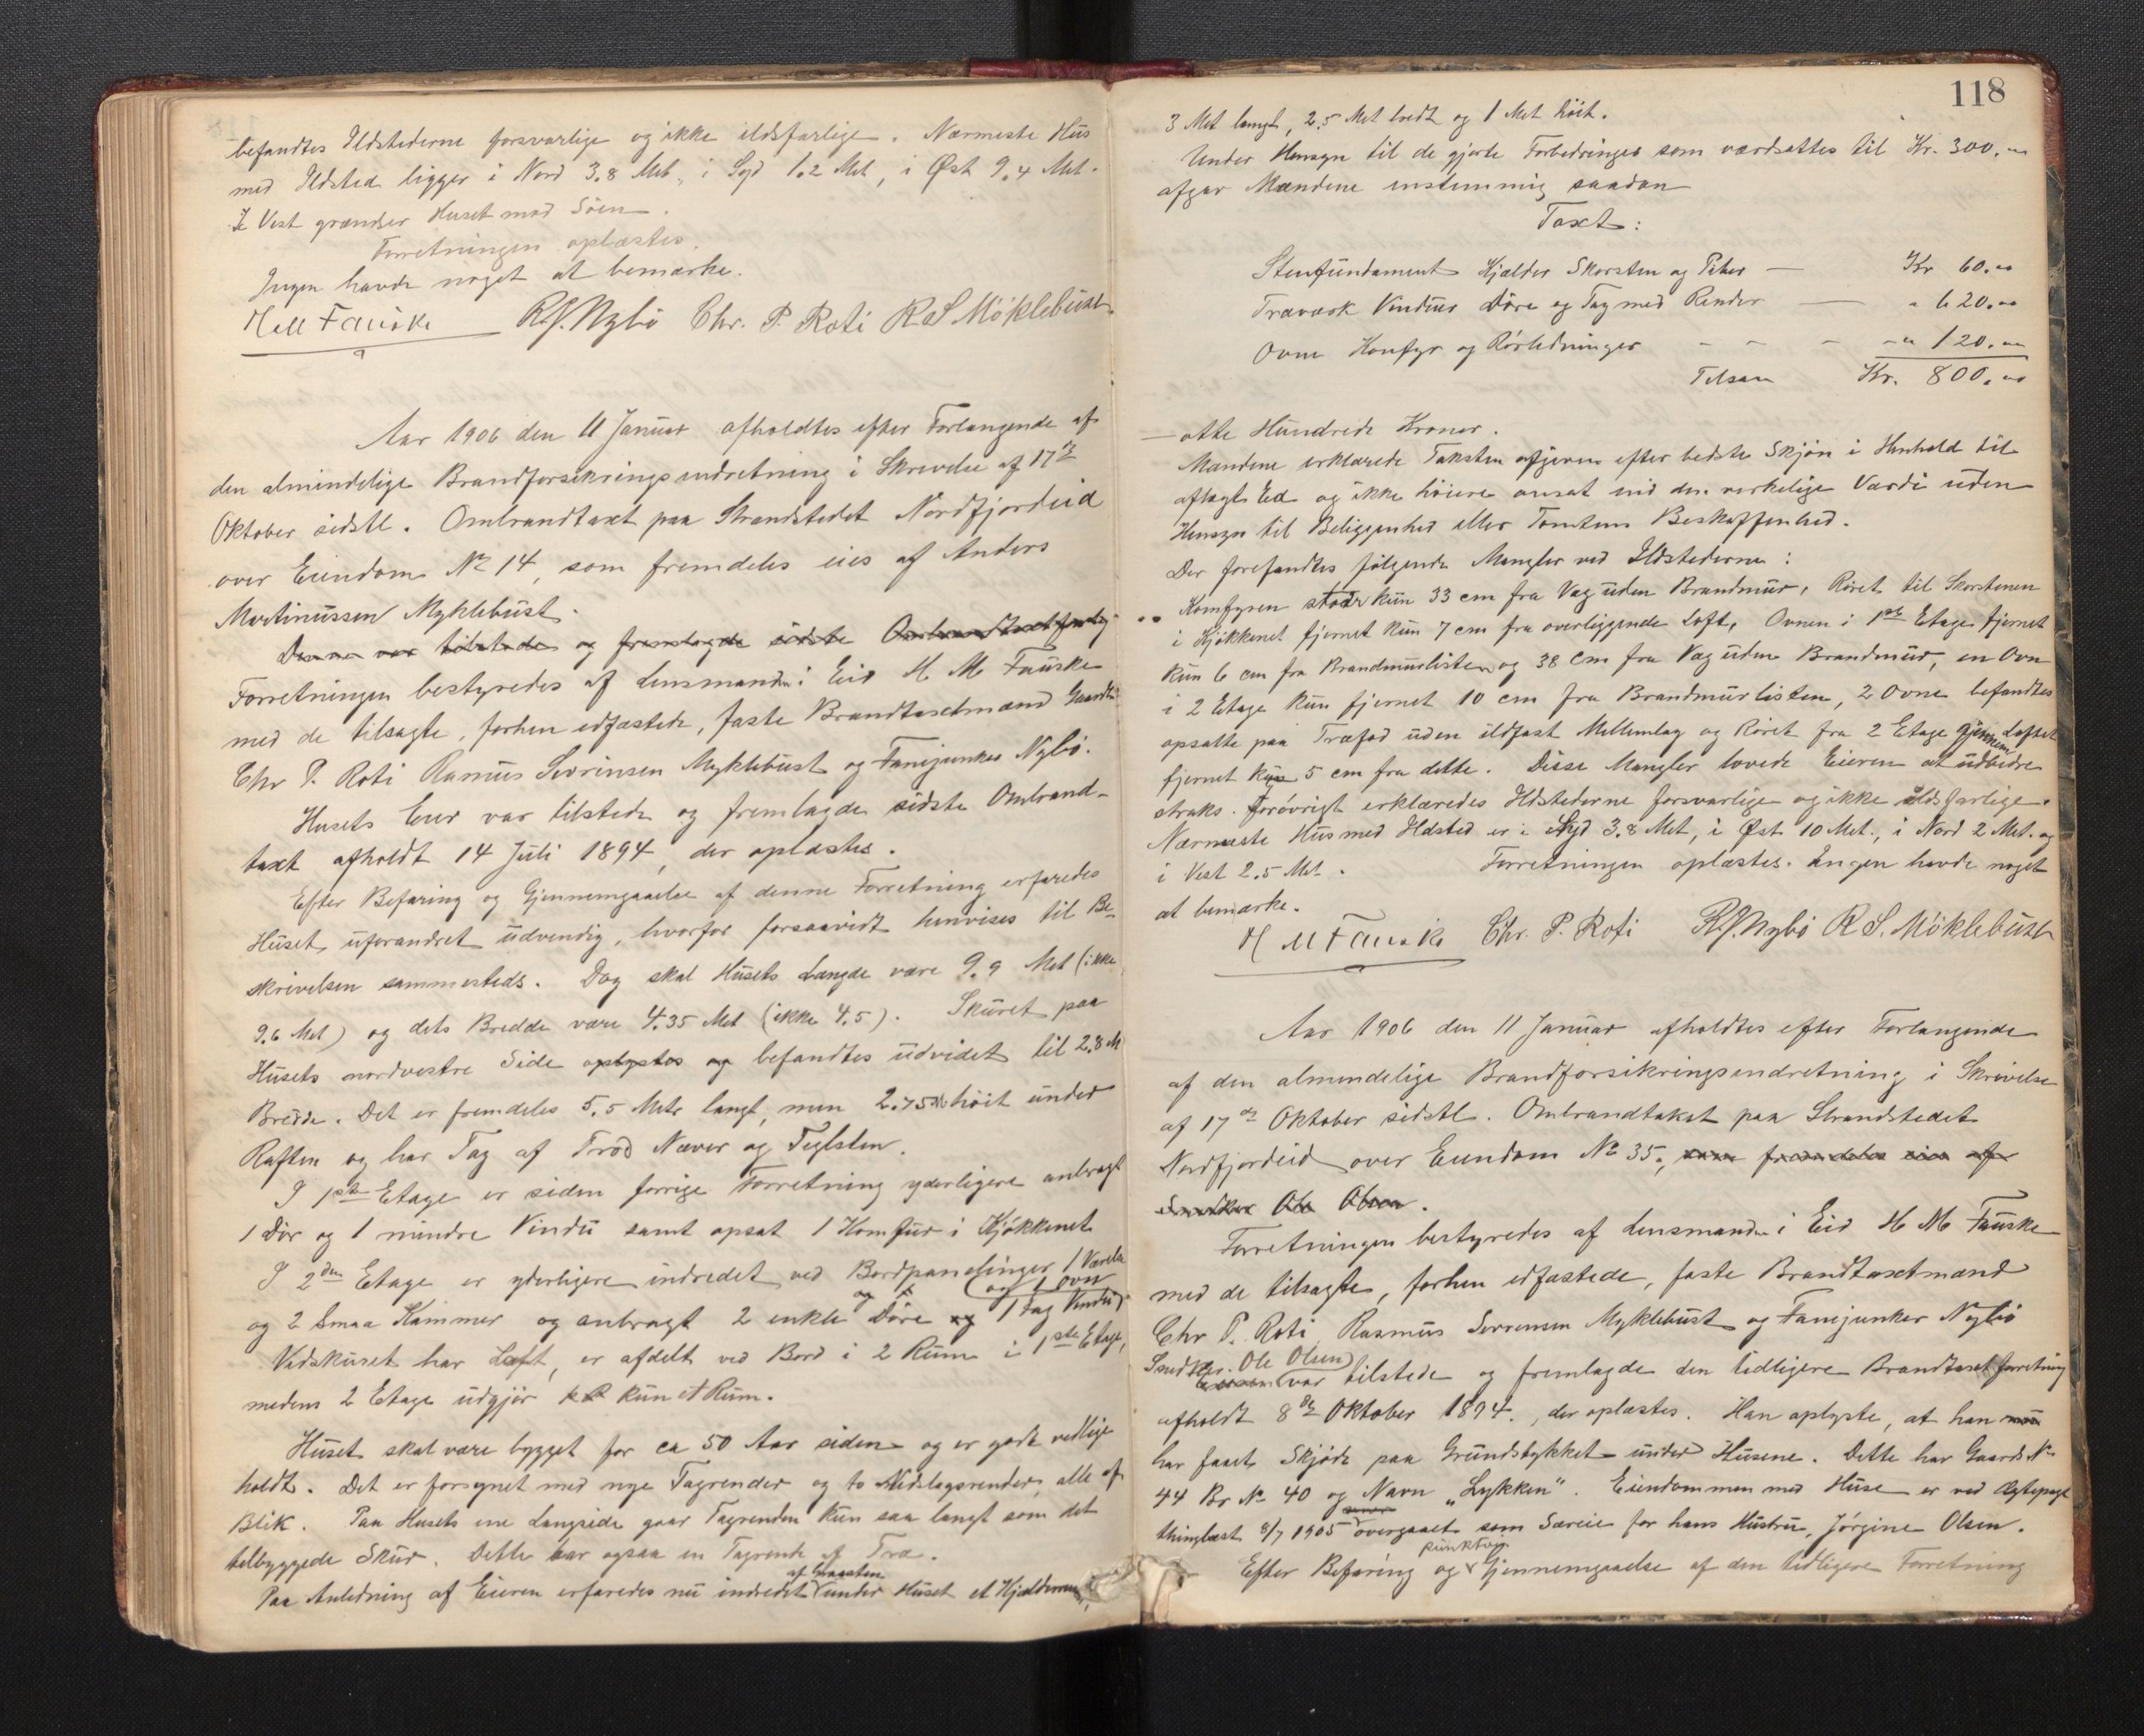 befandtes Ildstederne forsvarlige og ikke ildsfarlige. Nærmeste Hus
med Ildsted ligger i Nord 3.8 Met., i Syd 1.2 Met, i Øst 9.4 Met.
I Vest grændser Huset mod Søen.
Forretningen oplæstes.
Ingen havde noget at bemærke.
M M Fauske R.J. Nybø Chr. P. Roti R S Möklebust
Aar 1906 den 11 Januar afholdtes efter Forlangende af
den almindelige Brandforsikringsindretning i Skrivelse af 17de
Oktober sidstl. Ombrandtaxt paa Strandstedet Nordfjordeid
over Eiendom No 14, som fremdeles eies af Anders
Martinussen Myklebust.
Denne var tilstede og fremlagde sidste Ombrandtaxtforretg
Forretningen bestyredes af Lensmanden i Eid M M Fauske
med de tilsagte, forhen edfæstede, faste Brandtaxtmænd Gaardbr
Chr P. Roti Rasmus Severinsen Myklebust og Fanejunker Nybö.
Husets Eier var tilstede og fremlagde sidste Ombrand-
taxt afholdt 14 Juli 1894, der oplæstes.
Efter Befaring og Gjennemgaaelse af denne Forretning erfaredes
Huset uforandret udvendig, hvorfor forsaavidt henvises til Be-
skrivelsen sammesteds. Dog skal Husets Længde være 9.9 Met (ikke
9.6 Met) og dets Bredde være 4.35 Met (ikke 4.5). Skuret paa
Husets nordvestre Side oplystes og befandtes udvidet til 2.8 M
Bredde. Det er fremdeles 5.5 Metr langt, men 2.75 M höit under
Raften og har Tag af Trod Næver og Teglsten.
I 1ste Etage er siden forrige Forretning yderligere anbragt
1 Dör og 1 mindre Vindu samt opsat 1 Komfur i Kjökkenet
I 2den Etage er yderligere indredet ved Bordpanelinger 1 Værelse
og 1 Ovn
og 2 Smaa Kammer og anbragt 2 enkle Döre og 1 Fag Vindu
Vedskuret har Loft, er afdelt ved Bord i 2 Rum i 1ste Etage,
medens 2 Etage udgjör kun et Rum.
Huset skal være bygget for ca 50 Aar siden og er godt vedlige
holdt. Det er forsynet med nye Tagrender og to Nedslagsrender, alle af
Blik. Paa Husets ene Langside gaar Tagrenden kun saa langt som det
tilbyggede Skur. Dette har ogsaa en Tagrende af Træ.
af Graasten
Paa Anledning af Eieren erfaredes nu indredet under Huset et Kjælderrum,
118
3 Met langt, 2.5 Met bredt og 1 Met höit.
Under Hensyn til de gjorte Forbedringer som værdsattes til Kr. 300.00
afgav Mændene enstemmig saadan
Taxt:
Stenfundament Kjælder Skorsten og Piber — Kr 60.00
Træværk Vinduer Döre og Tag med Render — " 620.00
Ovne Komfyr og Rörledninger - - - - " 120.00
Tilsam Kr. 800.00
— otte Hundrede Kroner.
Mændene erklærede Taksten afgiven efter bedste Skjön i Henhold til
aflagt Ed og ikke höiere ansat end den verkelige Værdi uden
Hensyn til Beliggenhed eller Tomtens Beskaffenhed.
Der forefandtes fölgende Mangler ved Ildstederne:
Komfyren staar kun 33 cm fra Væg uden Brandmur, Röret til Skorstenen
i Kjökkenet fjernet kun 7 cm fra overliggende Loft, Ovnen i 1ste Etage fjernet
kun 6 cm fra Brandmurlisten og 38 cm fra Væg uden Brandmur, en Ovn
i 2 Etage kun fjernet 10 cm fra Brandmurlisten, 2 Ovne befandtes
opsatte paa Træfod uden ildfast Mellemlag og Röret fra 2 Etage gjennem Loftet
fjernet kun 5 cm fra dette. Disse Mangler lovede Eieren at udbedre
straks. Forövrigt erklæredes Ildstederne forsvarlige og ikke ildsfarlige.
Nærmeste Hus med Ildsted er i Syd 3.8 Met, i Öst 10 Met., i Nord 2 Met. og
i Vest 2.5 Met. Forretningen oplæstes. Ingen havde noget
at bemærke.
M M Fauske Chr. P. Roti R.J. Nybö R S. Möklebust
Aar 1906 den 11 Januar afholdtes efter Forlangende
af den almindelige Brandforsikringsindretning i Skrivelse
af 17de Oktober sidstl. Ombrandtakst paa Strandstedet
Nordfjordeid over Eiendom No 35., som fremdeles eies af
Snedker Ole Olsen.
Forretningen bestyredes af Lensmanden i Eid M M Fauske
med de tilsagte, forhen edfæstede, faste Brandtaxtmænd
Chr P. Roti, Rasmus Severinsen Myklebust og Fanejunker Nybö
Snedker Ole Olsen
Eieren var tilstede og fremlagde den tidligere Brandtaxtforretning
afholdt 8de Oktober 1894., der oplæstes. Han oplyste, at han nu
har faaet Skjöde paa Grundstykket under Husene. Dette har Gaards No
44 Br No 40 og Navn „Lykken". Eiendommen med Huse er ved Ægtepagt
thinglæst 8/7 1905 overgaaet som Særeie for hans Hustru, Jörgine Olsen.
punktvis
Efter Befaring og Gjennemgaaelse af den tidligere Forretning